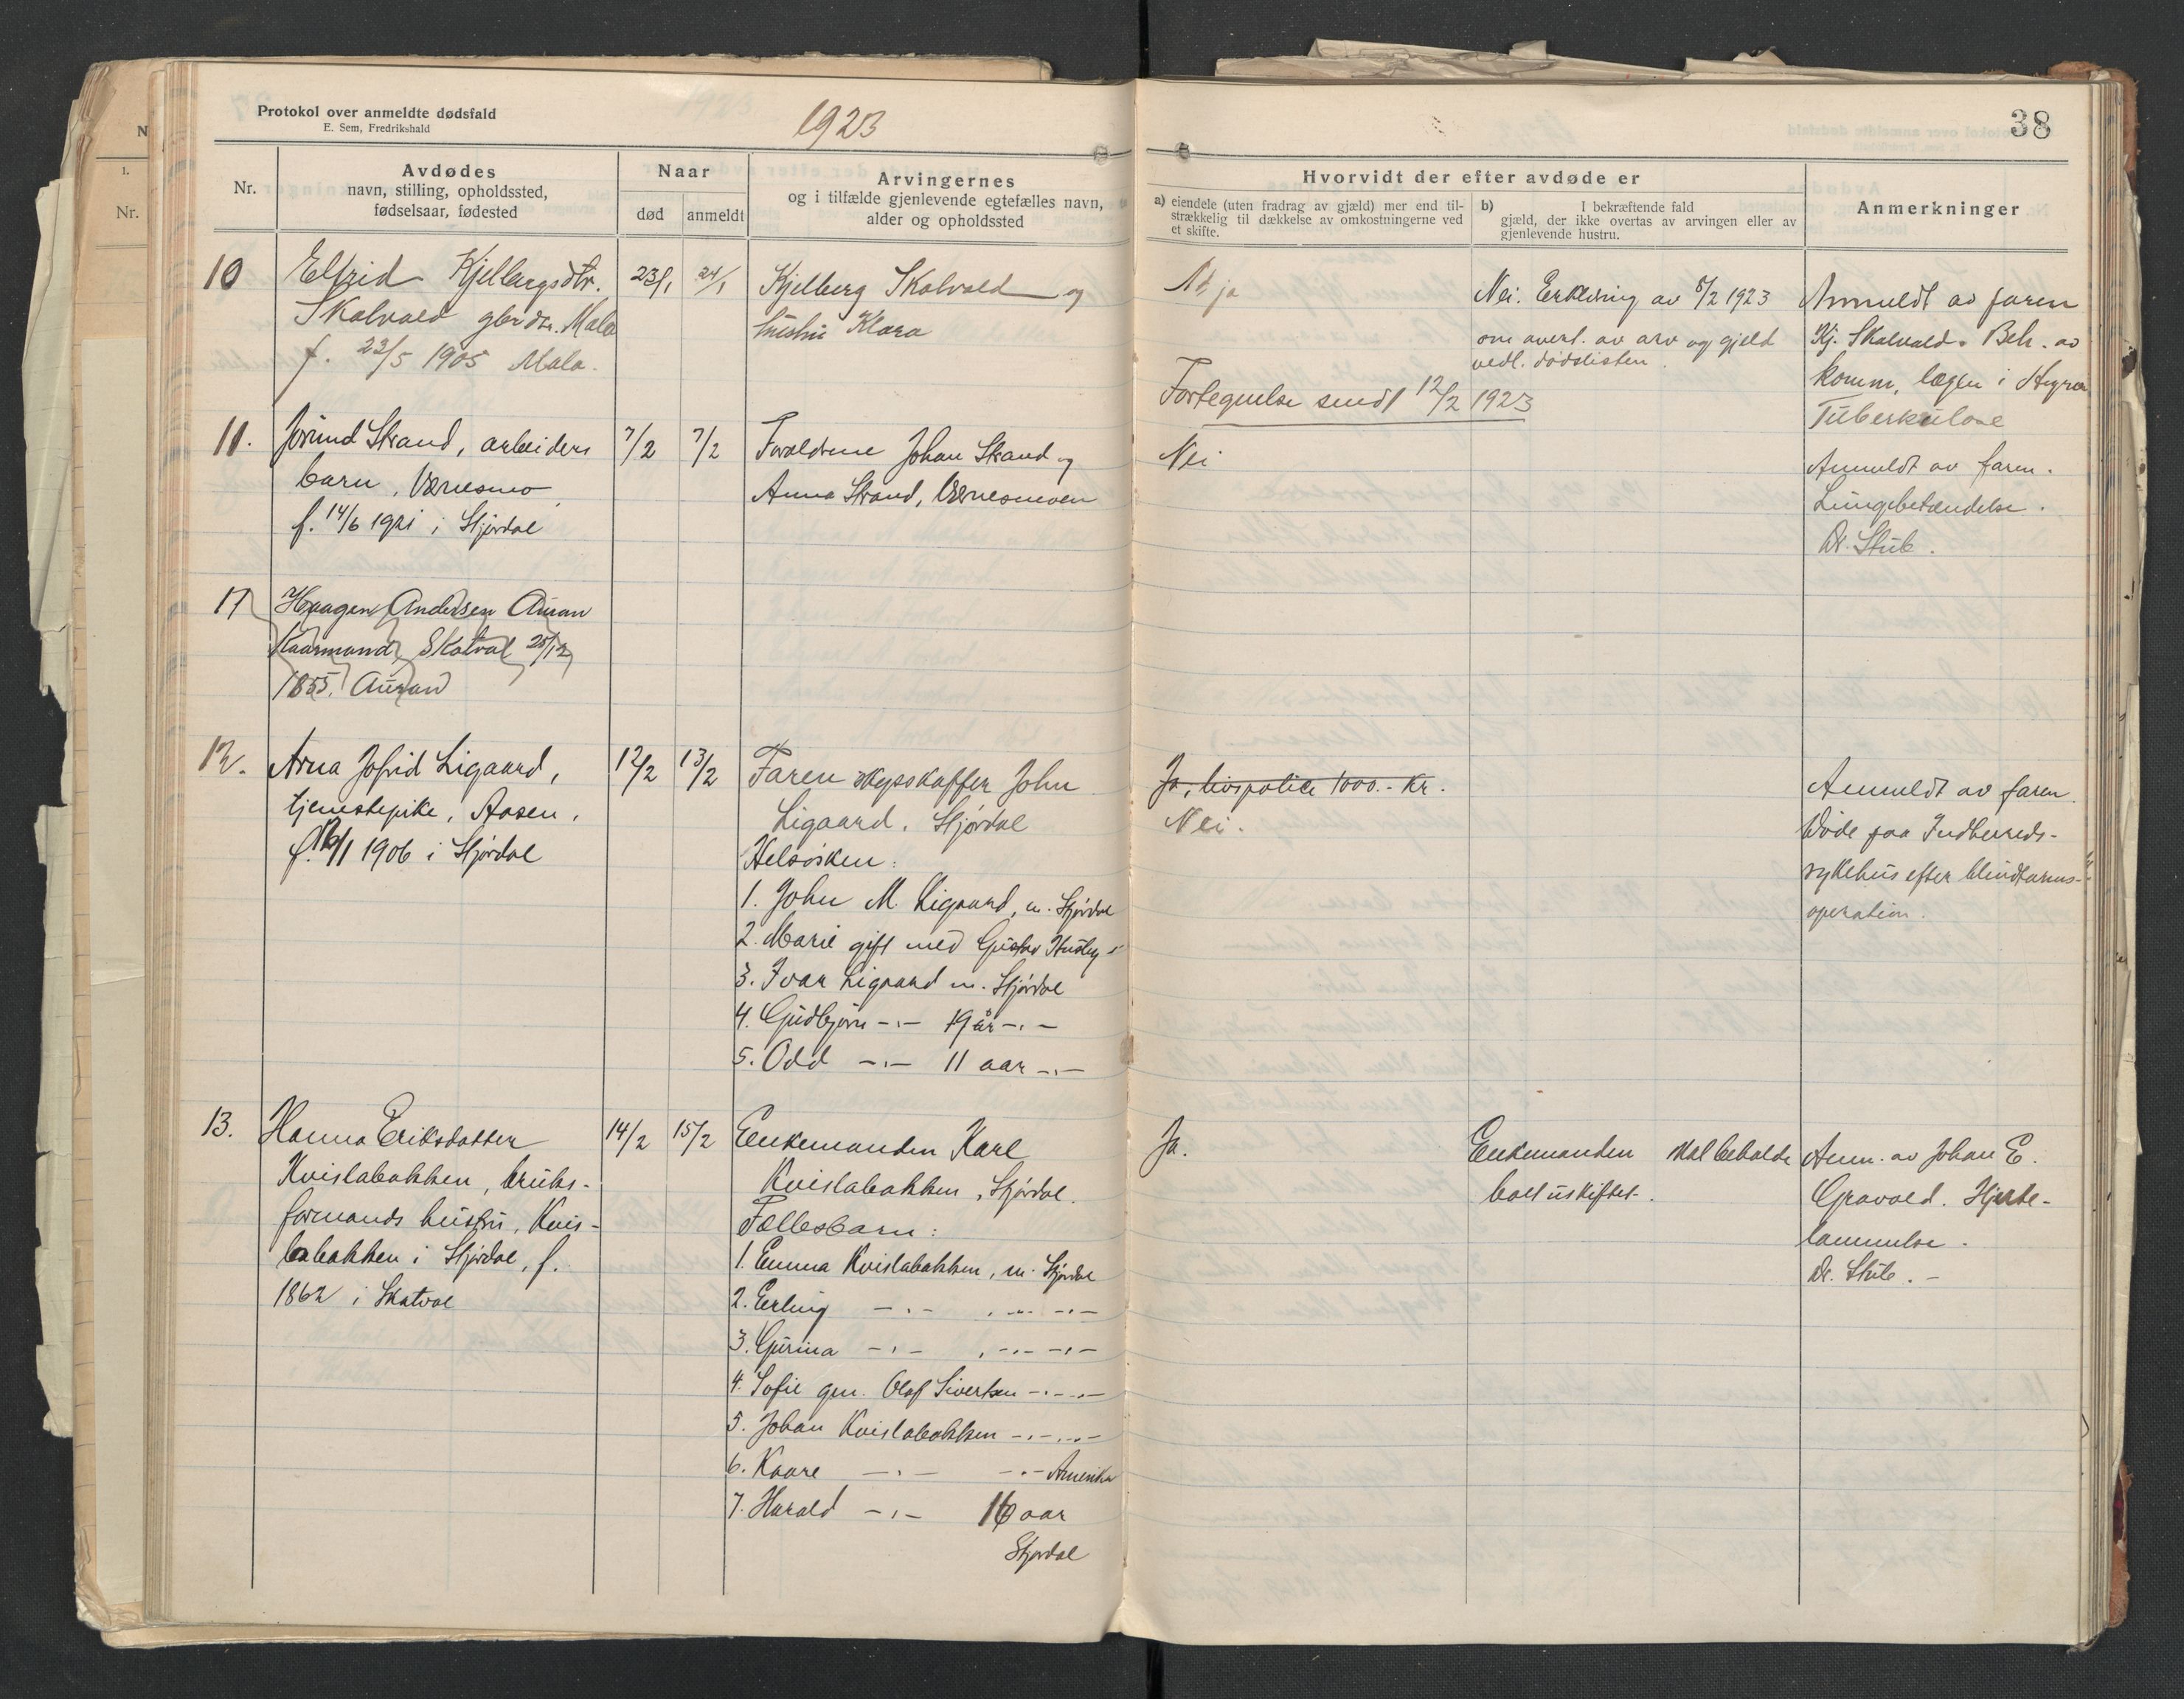 Protokol over anmeldte dødsfald
E. Sem, Fredrikshald
1923
38
Nr.
Avdødes
navn, stilling, opholdssted,
fødselsaar, fødested
Naar
død
anmeldt
Arvingernes
og i tilfælde gjenlevende egtefælles navn,
alder og opholdssted
Hvorvidt der efter avdøde er
a) eiendele (uten fradrag av gjæld) mer end til-
strækkelig til dækkelse av omkostningerne ved
et skifte.
b) I bekræftende fald
gjæld, der ikke overtas av arvingen eller av
gjenlevende hustru.
Anmerkninger
10
Elfrid Kjelbergsdtr.
Skalvold gbrdtr. Mala
f. 23/5 1905 Mala.
23/1
24/1
Kjelberg Skalvold og
hustru Klara
ja
Nei. Erklæring av 8/2 1923
om overt. av arv og gjeld
vedl. dødslisten.
Fortegnelse sendt 12/2 1923
Anmeldt av faren
Kj. Skalvold. Beh. av
komm. lægen i Hegra
Tuberkulose
11.
Jorund Strand, arbeiders
barn, Værnesmo
f. 14/6 1921 i Stjørdal
7/2
7/2
Forældrene Johan Strand og
Anna Strand, Værnesmoen
Nei
Anmeldt av faren.
Lungebetændelse.
Dr. Stub.
Haagen Andersen Auran
Kaarmand, Skatval 25/12
1855. Auran
12.
Arna Jofrid Ligaard,
tjenestepike, Aasen,
f. 16/1 1906 i Stjørdal
12/2
13/2
Faren skysskaffer John
Ligaard. Stjørdal
Helsøsken:
1. John M. Ligaard, m. Stjørdal
2. Marie gift med Gustav Husby -"-
3. Ivar Ligaard m. Stjørdal
4. Gudbjørn -"- 19 år -"-
5. Odd -"- 11 aar -"-
Ja, livspolice 1000.- kr.
Nei.
Anmeldt av faren.
Døde paa Indherreds-
sykehus efter blindtarms-
operation.
13.
Hanna Eriksdatter
Kvislabakken, bruks-
formands hustru, Kvis-
labakken i Stjørdal, f.
1862 i Skatval
14/2
15/2
Enkemanden Karl
Kvislabakken, Stjørdal.
Fællesbarn:
1. Emma Kvislabakken, m. Stjørdal
2. Erling -"- , -"- -"-
3. Gurina -"- , -"- -"-
4. Sofie gm. Olaf Sivertsen -"-
5. Johan Kvislabakken -"- -"-
6. Kaare -"- -"- Amerika
7. Harald -"- 16 aar
Stjørdal
Ja.
Enkemanden skal beholde
boet uskiftet.
Anm. av Johan E.
Gravold. Hjerte-
lammelse.
Dr. Stub. -